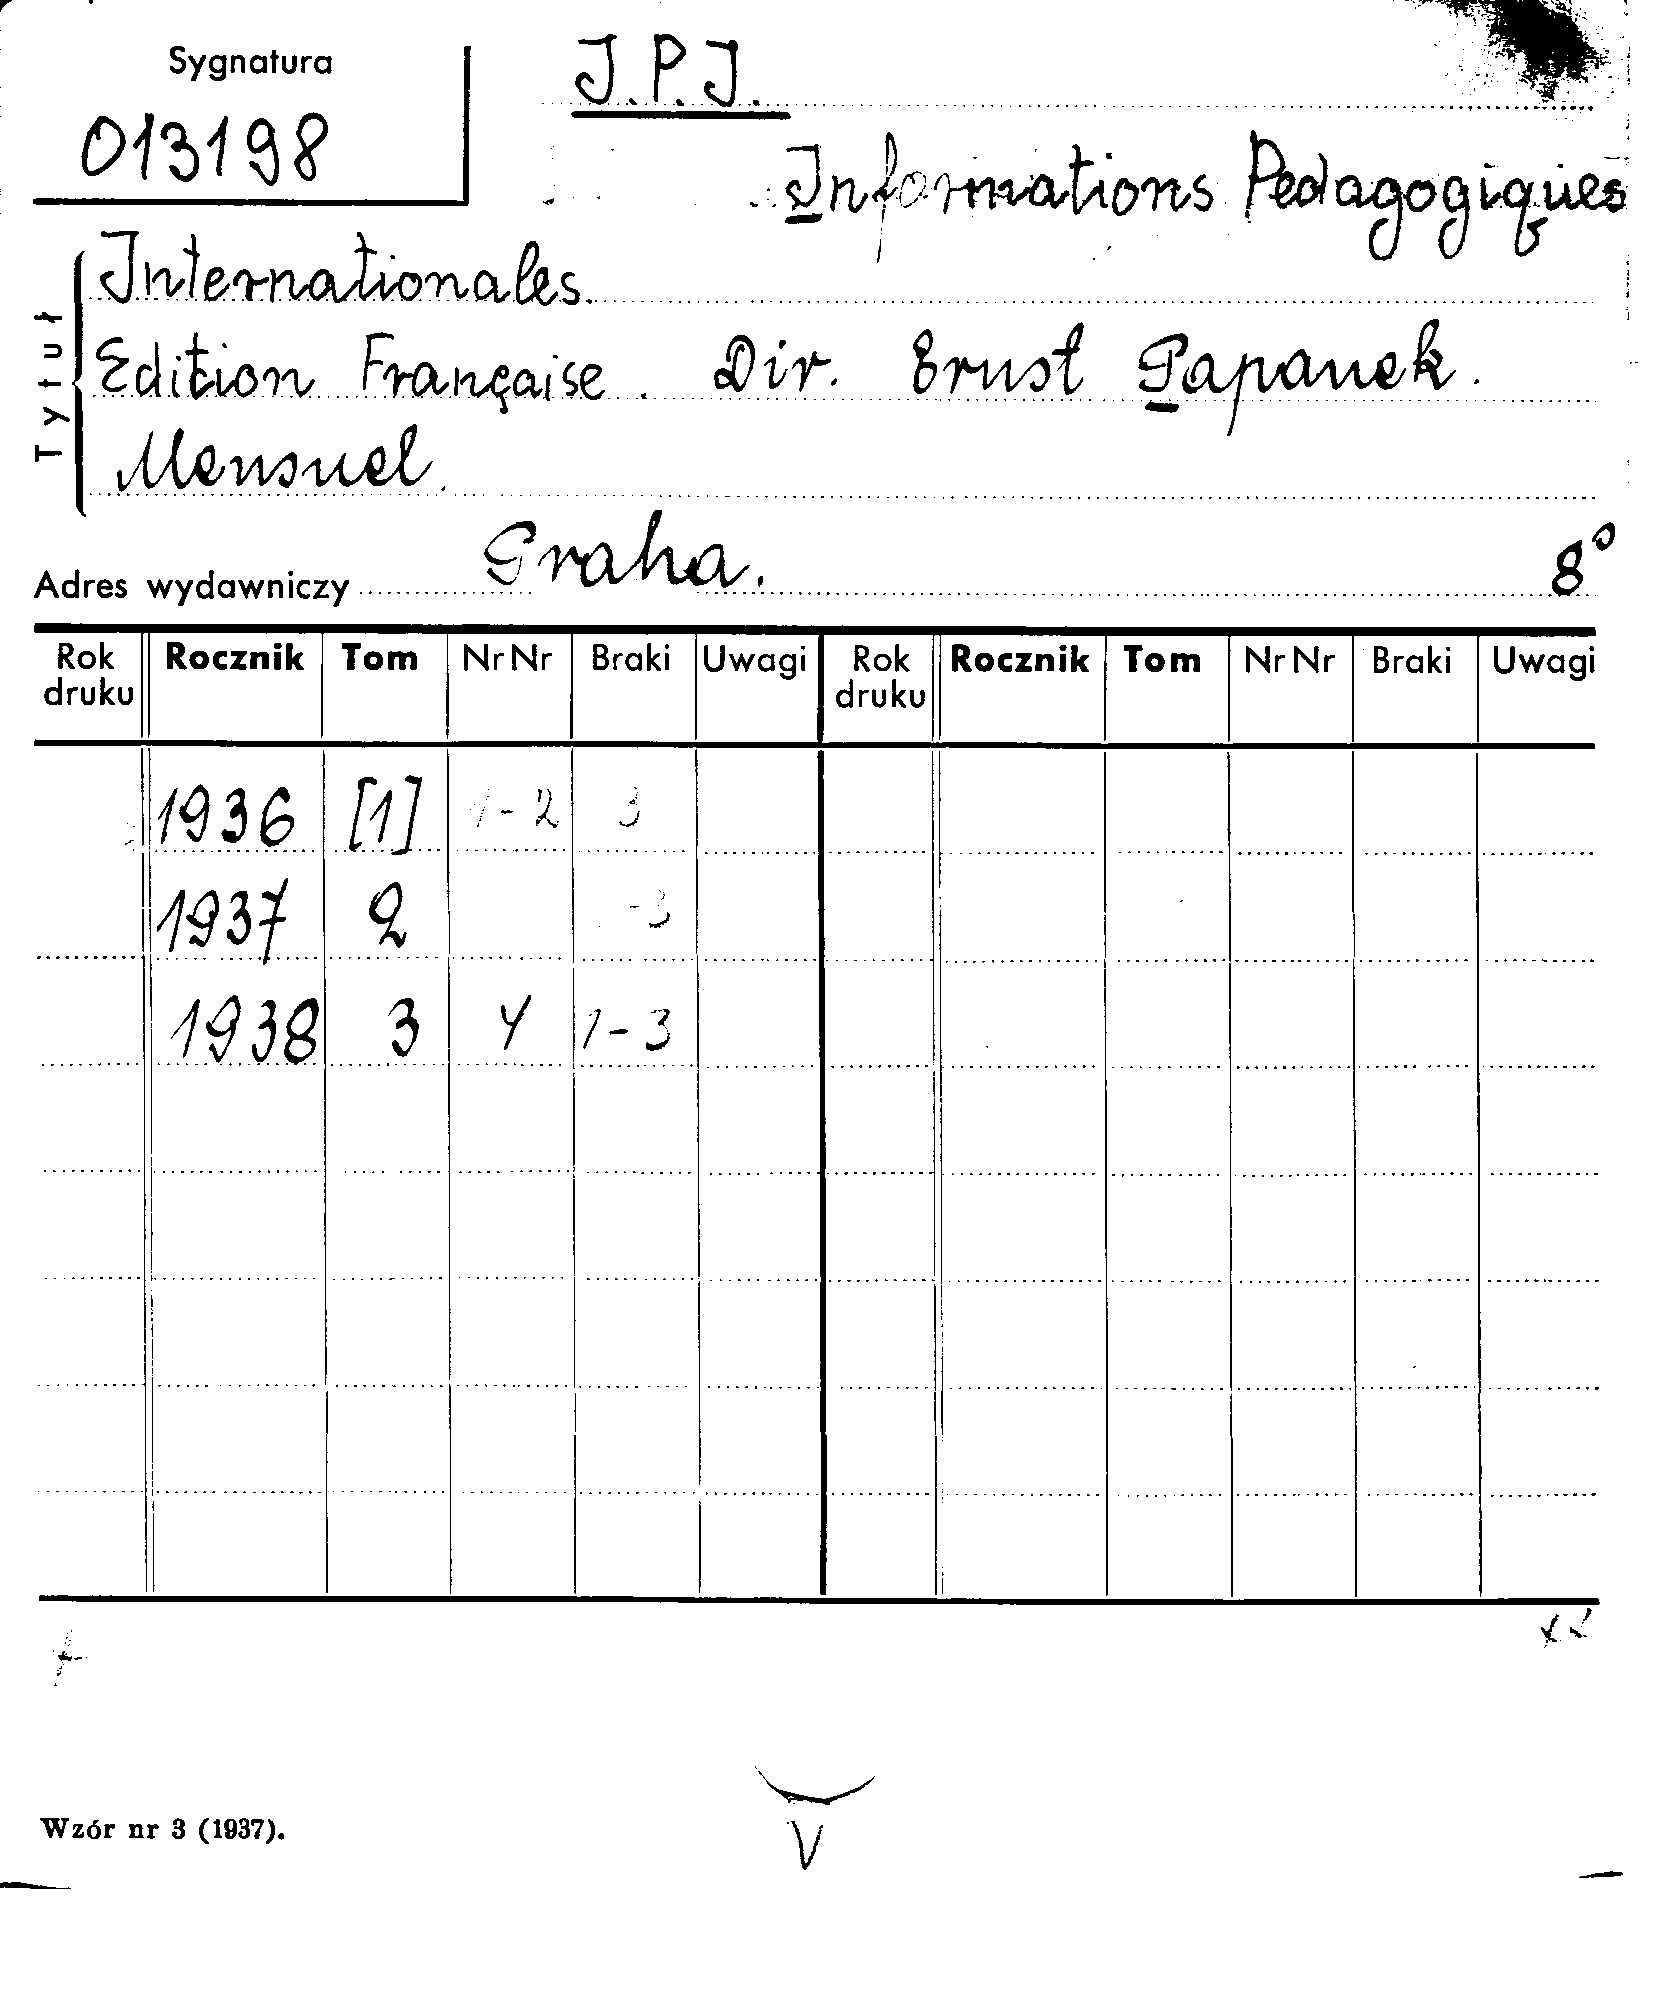 Sygnatura
013198
J.P.J.
Informations Pedagogiques
Tytuł
Internationales.
Edition Française. Dir. Ernst Papanek.
Mensuel.
Adres wydawniczy Praha. 8°
Rok druku Rocznik Tom Nr Nr Braki Uwagi Rok druku Rocznik Tom Nr Nr Braki Uwagi
1936 [1] 1-2 3
1937 2 -3
1938 3 4 1-3
V
Wzór nr 3 (1937).